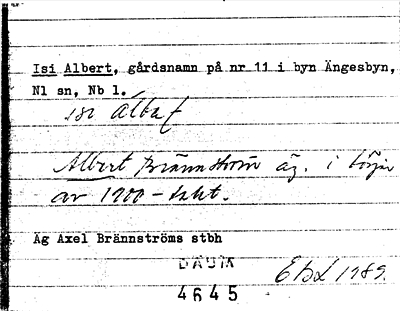 Isi Albert, gårdsnamn på nr 11 i byn Ängesbyn,
Nl sn, Nb l.
isi
Albert Brännström äg. i början
av 1900-talet.
Ag Axel Brännströms stbh
DAUM
EbL 1989.
4645